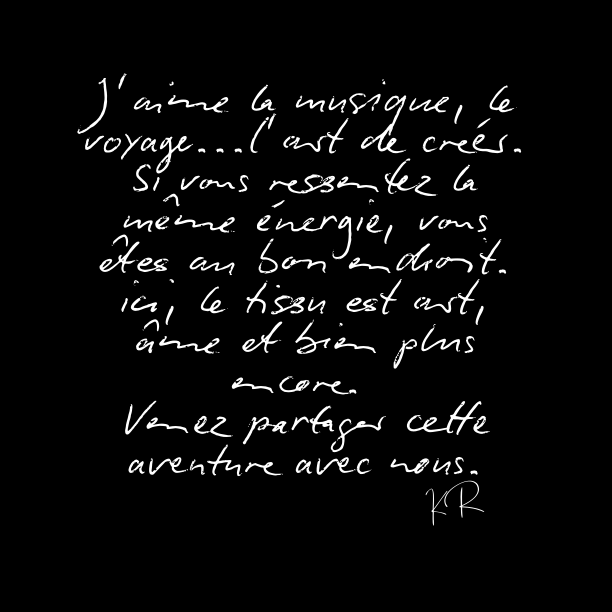 J'aime la musique, le
voyage...l'art de créer.
Si vous ressentez la
même énergie, vous
êtes au bon endroit.
ici, le tissu est art,
âme et bien plus
encore.
Venez partager cette
aventure avec nous.
KR